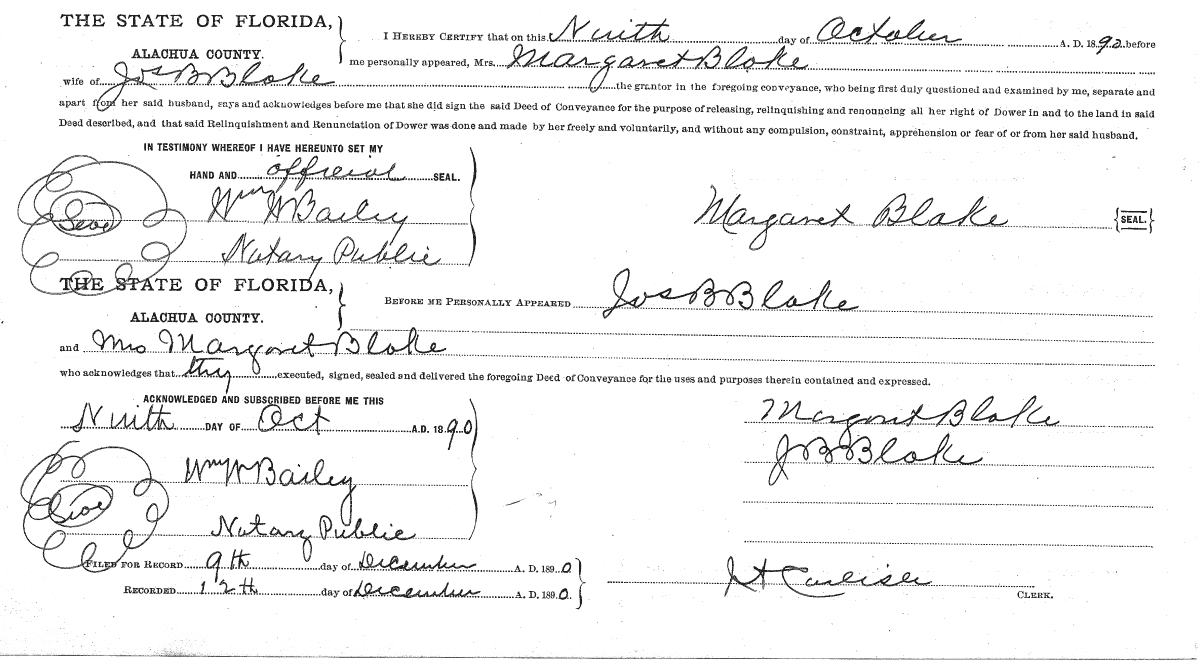 THE STATE OF FLORIDA,
ALACHUA COUNTY.
I HEREBY CERTIFY that on this Ninth day of October A. D. 1890 before
me personally appeared, Mrs. Margaret Blake
wife of Jos B Blake the grantor in the foregoing conveyance, who being first duly questioned and examined by me, separate and
apart from her said husband, says and acknowledges before me that she did sign the said Deed of Conveyance for the purpose of releasing, relinquishing and renouncing all her right of Dower in and to the land in said
Deed described, and that said Relinquishment and Renunciation of Dower was done and made by her freely and voluntarily, and without any compulsion, constraint, apprehension or fear of or from her said husband.
IN TESTIMONY WHEREOF I HAVE HEREUNTO SET MY
HAND AND official SEAL.
Seal
Wm W Bailey
Notary Public
Margaret Blake {SEAL.}
THE STATE OF FLORIDA,
ALACHUA COUNTY.
BEFORE ME PERSONALLY APPEARED Jos B Blake
and Mrs Margaret Blake
who acknowledges that they executed, signed, sealed and delivered the foregoing Deed of Conveyance for the uses and purposes therein contained and expressed.
ACKNOWLEDGED AND SUBSCRIBED BEFORE ME THIS
Ninth DAY OF Oct A.D. 1890
Seal
Wm W Bailey
Notary Public
Margaret Blake
J B Blake
FILED FOR RECORD 9th day of December A. D. 1890
RECORDED 12th day of December A. D. 1890.
Carlisle
CLERK.